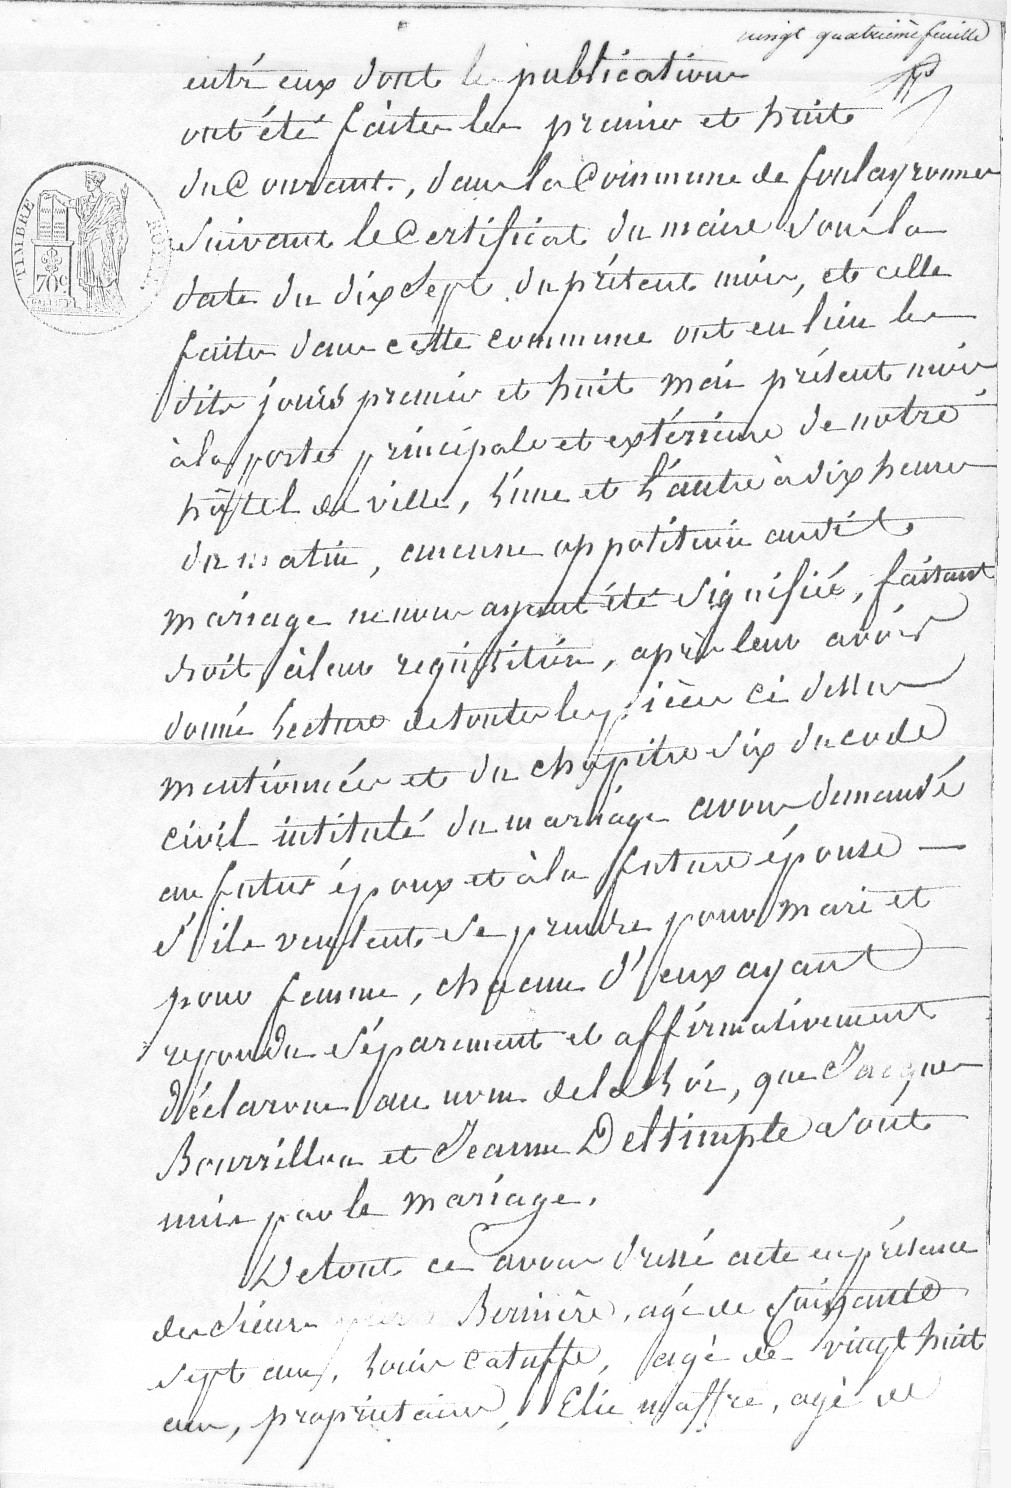 vingt quatrième feuille
entr'eux dont les publications
ont été faites les premier et huit
du Courant, dans la Commune de foulayronnes
suivant le Certificat du maire sous la
date du dix Sept du présent mois, et celles
faites dans cette commune ont eu lieu les
dits jours premier et huit mai présent mois
à la porte principale et extérieure de notre
hôtel de ville, l'une et l'autre à dix heures
du matin, aucune oppotition audit
mariage ne nous ayant été signifiée, faisant
droit à leur requisition, après leur avoir
donné lecture de toutes les pièces ci dessus
mentionnées et du chapitre six du code
civil intitulé du mariage avons demandé
au futur époux et à la future épouse —
s'ils veulent se prendre pour mari et
pour femme, chacun d'eux ayant
repondu séparement et affirmativement
déclarons au nom de la loi, que Jacques
Bourrillon et Jeanne Delsimple sont
unis par le mariage.
De tout ce avons dressé acte en présence
des sieurs Bernière, agé de soixante
sept ans, Louis Catuffe, agé de vingt huit
ans, propriétaires, Elie Maffre, agé de
TIMBRE
70c